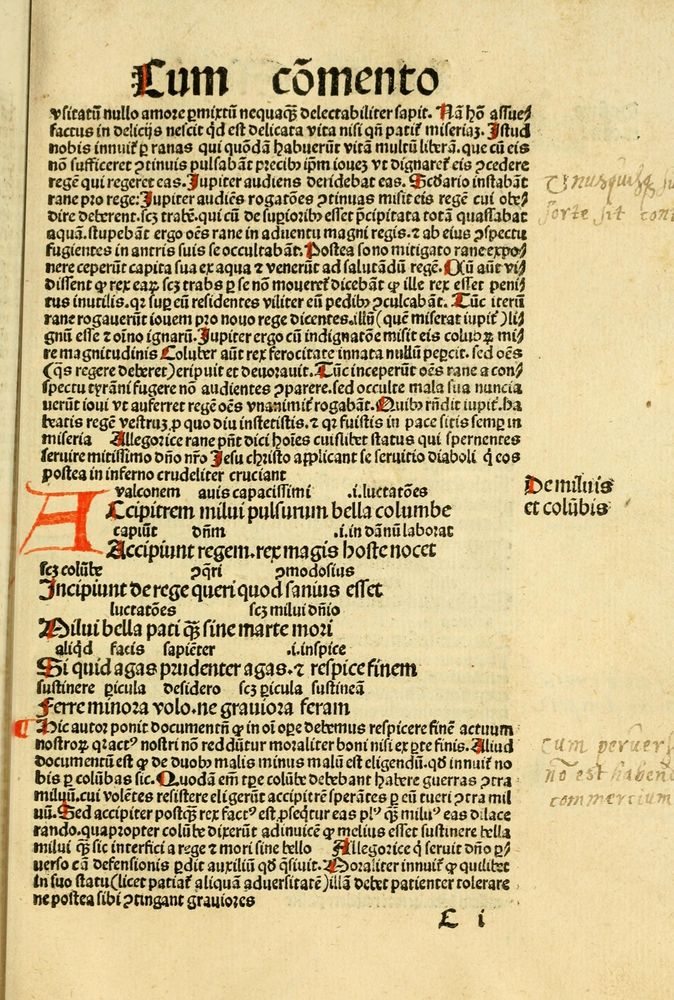 Cum cōmento
vsitatū nullo amore ꝑmixtū nequaꝙ̄ delectabiliter sapit. Nā hō assue/
factus in delicijs nescit qd̄ est delicata vita nisi qn̄ patiť miseriaꝫ. Istud
nobis innuiť ꝑ ranas qui quōdā habuerūt vitā multū liberā. que cū eis
nō sufficeret ꝯtinuis pulsabāt precibꝰ ip̄m ioueꝫ vt dignareť eis ꝯcedere
regē qui regeret eas. Jupiter audiens deridebat eas. Scd̄ario instabāt
rane pro rege: Jupiter audiēs rogatōes ꝯtinuas misit eis regē cui obe/
dire deberent. scꝫ trabē. qui cū de supioribꝰ esset p̄cipitata totā quassabat
aquā. stupebāt ergo oēs rane in aduentu magni regis. ⁊ ab eius ꝯspectu
fugientes in antris suis se occultabāt. Postea sono mitigato rane expo/
nere ceperūt capita sua ex aqua ⁊ venerūt ad salutādū regē. Cū aūt vi/
dissent ꝙ rex eaꝝ scꝫ trabs ꝑ se nō moueret dicebāt ꝙ ille rex esset peni/
tus inutilis. qr sup eū residentes viliter eū pedibꝰ ꝯculcabāt. Tūc iterū
rane rogauerūt iouem pro nouo rege dicentes. illū (quē miserat iupiť) li/
gnū esse ⁊ oīno ignarū. Jupiter ergo cū indignatōe misit eis colubꝝ mi/
re magnitudinis Coluber aūt rex ferocitate innata nullū peꝑcit. sed oēs
(qs regere deberet) eripuit et deuorauit. Tūc inceperūt oēs rane a con/
spectu tyrāni fugere nō audientes ꝯparere. sed occulte mala sua nuncia
uerūt ioui vt auferret regē oēs vnanimiť rogabāt. Quibꝰ rn̄dit iupiť. ha
beatis regē vestruꝫ. ꝑ quo diu institistis. ⁊ qr fuistis in pace sitis semꝑ in
miseria Allegorice rane pn̄t dici hoīes cuiuslibet status qui spernentes
seruire mitissimo dn̄o nr̄o Jesu christo applicant se seruitio diaboli q̇ eos
postea in inferno crudeliter cruciant
valconem auis capacissimi .i. luctatōes
Accipitrem milui pulsurum bella columbe
capiūt dn̄m .i. in dānū laborat
Accipiunt regem. rex magis hoste nocet
scꝫ colūbe ꝯqri ꝯmodosius
Incipiunt de rege queri quod sanius esset
luctatōes scꝫ milui dn̄io
Milui bella pati ꝙ̄ sine marte mori
aliqd facis sapiēter .i. inspice
Si quid agas prudenter agas. ⁊ respice finem
sustinere ꝑicula desidero scꝫ ꝑicula sustineā
Ferre minora volo. ne grauiora feram
De miluis
et colūbis
¶ Hic autor ponit documentū ꝙ in oī oꝑe debemus respicere finē actuum
nostroꝝ. qr actꝰ nostri nō reddūtur moraliter boni nisi ex ꝑte finis. Aliud
documentū est ꝙ de duobꝰ malis minus malū est eligendū. qd̄ innuiť no
bis ꝑ colūbas sic. Quodā em̄ tꝑe colūbe debebant habere guerras ꝯtra
miluū. cui volētes resistere eligerūt accipitrē sperātes ꝑ eū tueri ꝯtra mil
uū. Sed accipiter postꝙ̄ rex factꝰ est. ꝑseqtur eas plꝰ ꝙ̄ miluꝰ eas dilace
rando. quapropter colūbe dixerūt adinuicē ꝙ melius esset sustinere bella
milui ꝙ̄ sic interfici a rege ⁊ mori sine bello Allegorice q̇ seruit dn̄o ꝑ/
uerso cā defensionis ꝑdit auxiliū qd̄ qsiuit. Moraliter innuiť ꝙ quilibet
in suo statu (licet patiať aliquā aduersitatē) illā debet patienter tolerare
ne postea sibi ꝯtingant grauiores
E i
Cum peruers
nō est habend
commercium